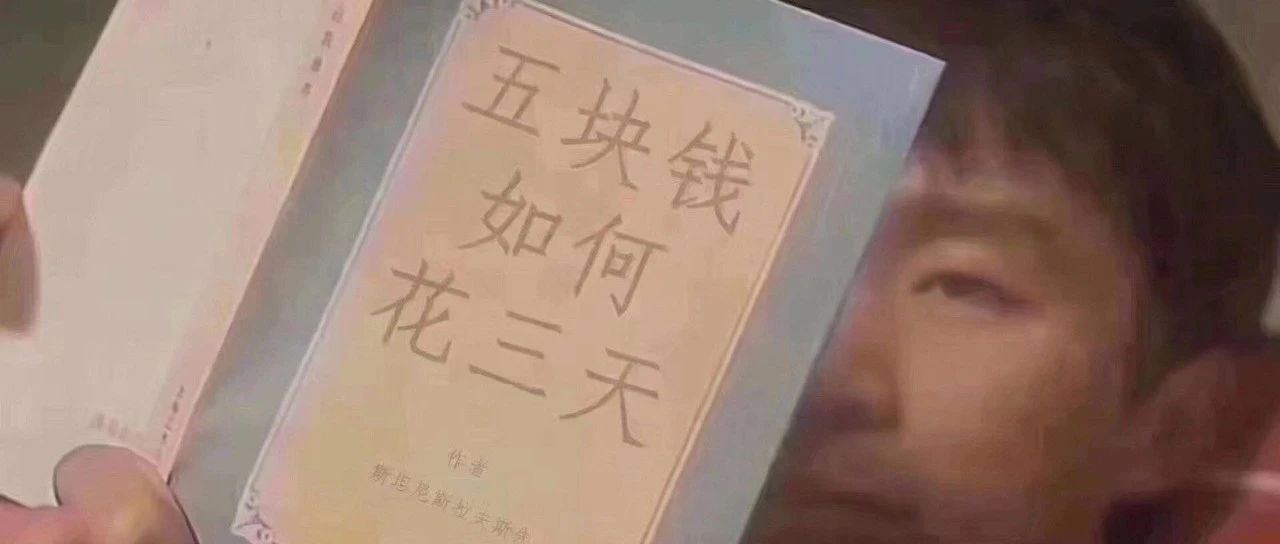 五块钱
如何
花三天
作者
斯坦尼斯拉夫斯